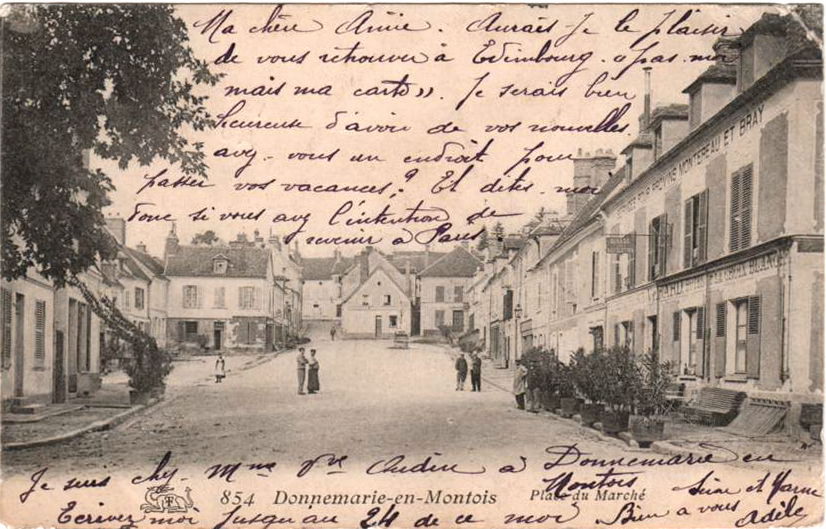 Ma chère Amie. Aurais-Je le plaisir
de vous retrouver à Edimbourg. "pas moi
mais ma carte". Je serais bien
heureuse d'avoir de vos nouvelles
avez-vous un endroit pour
passer vos vacances? Et dites-moi
donc si vous avez l'intention de
revenir à Paris
PROVINS MONTEREAU ET BRAY
Je suis chez Mme Vve Audin à Donnemarie en
Montois
854 Donnemarie-en-Montois Place du Marché
Seine et Marne
Ecrivez moi Jusqu'au 24 de ce moi Bien a vous
Adèle